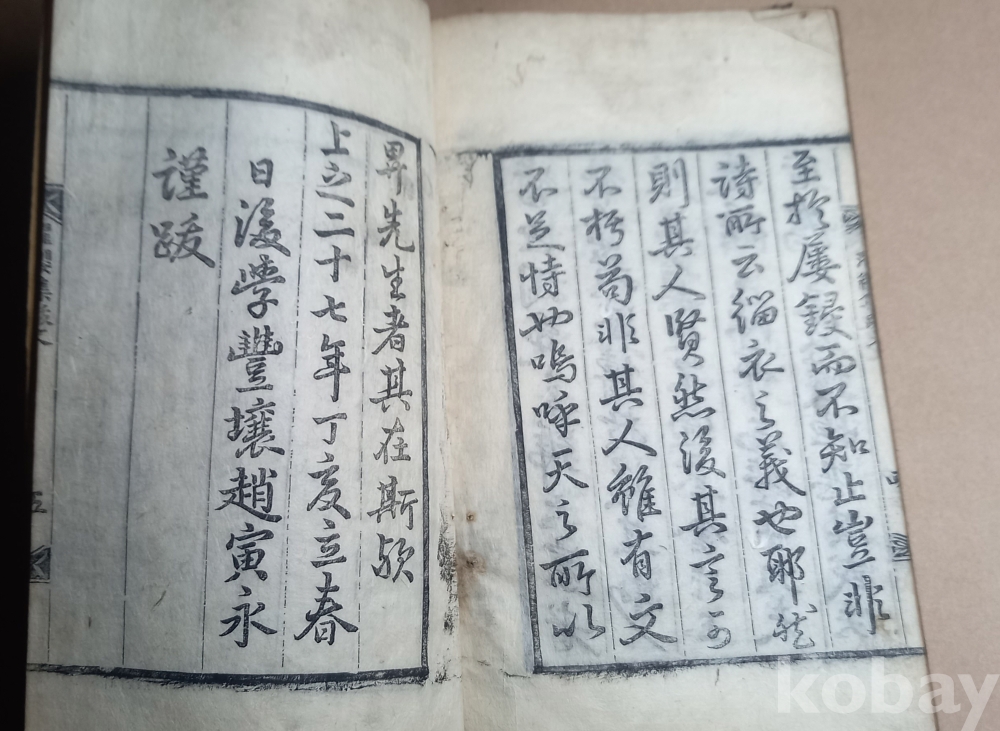 至於屢鋟而不知止豈非
詩所云緇衣之義也耶然
則其人賢然後其言可
不朽苟非其人雖有文
不足恃也嗚呼天之所以
畀先生者其在斯歟
上之二十七年丁亥立春
日後學豐壤趙寅永
謹跋
集跋文
五
kobay